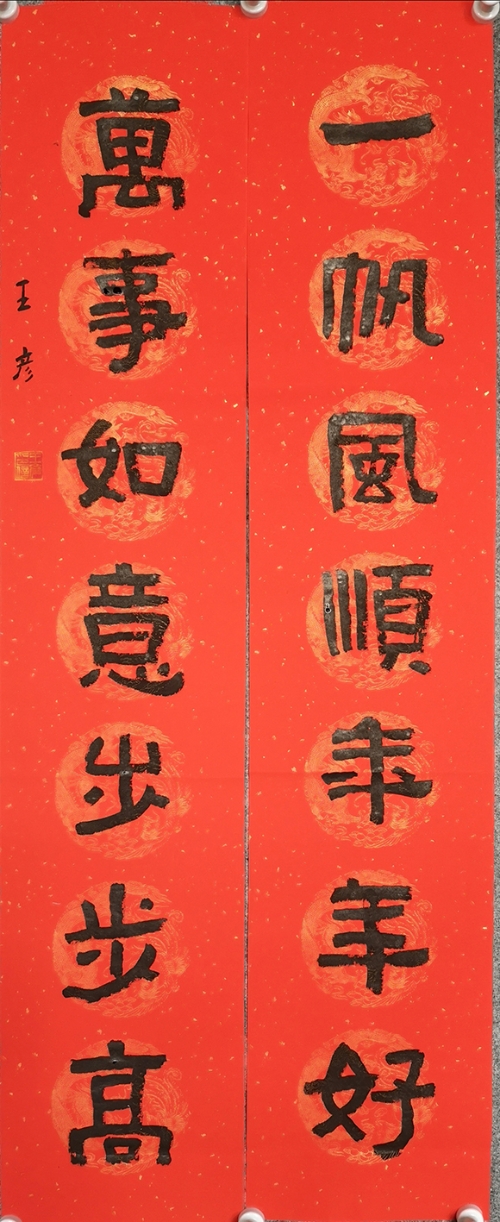 一帆风順年年好
萬事如意步步高
王彦